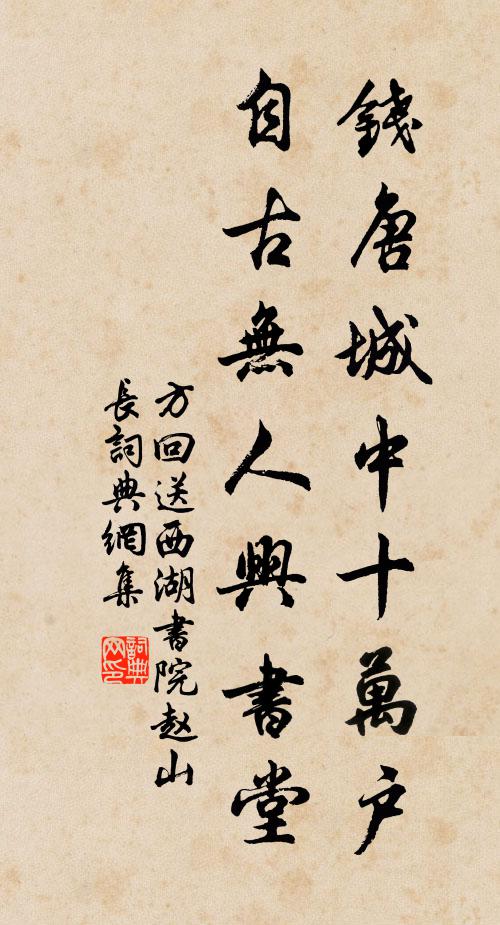 錢唐城中十萬户
自古無人興書堂
方回送西湖書院赵山
長詞典網集
詞典
网印